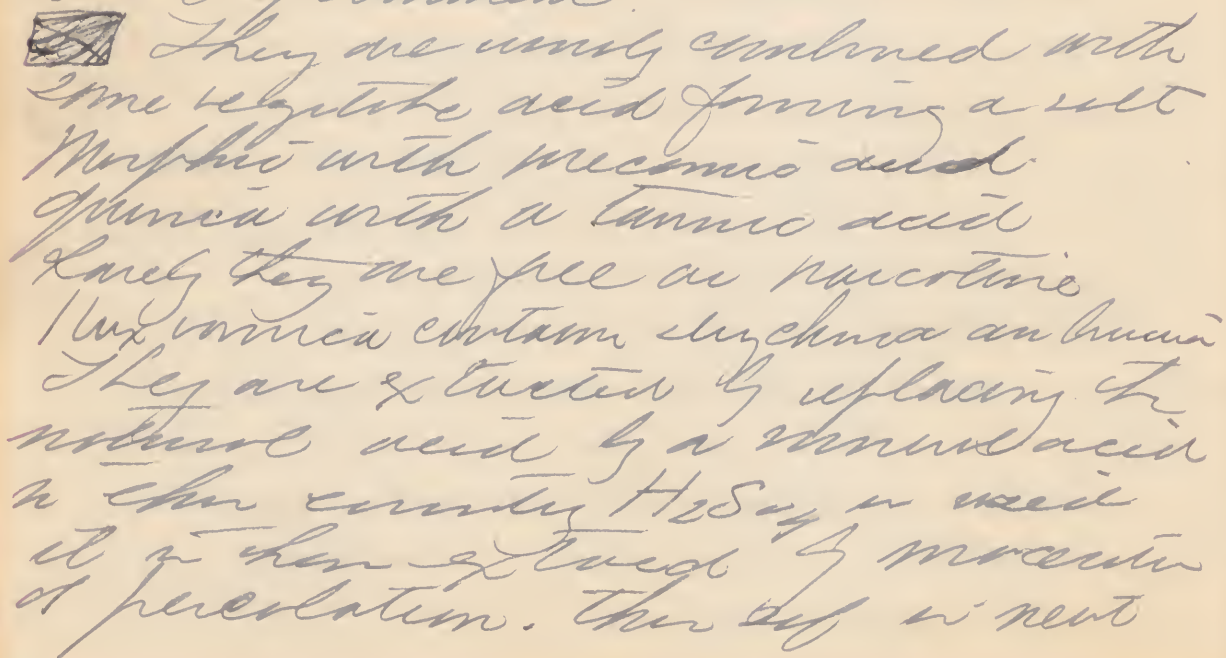 They are usually combined with
some vegitable acid forming a salt
Morphia with meconic acid
Quinia with a tannic acid
Rarely they are free as narcotine
Nux vomica contains strychnia an brucia
They are extracted by replacing the
natural acid by a mineral acid
in this country H2SO4 is used
it is then extraced by maceration
or percolation. This is next